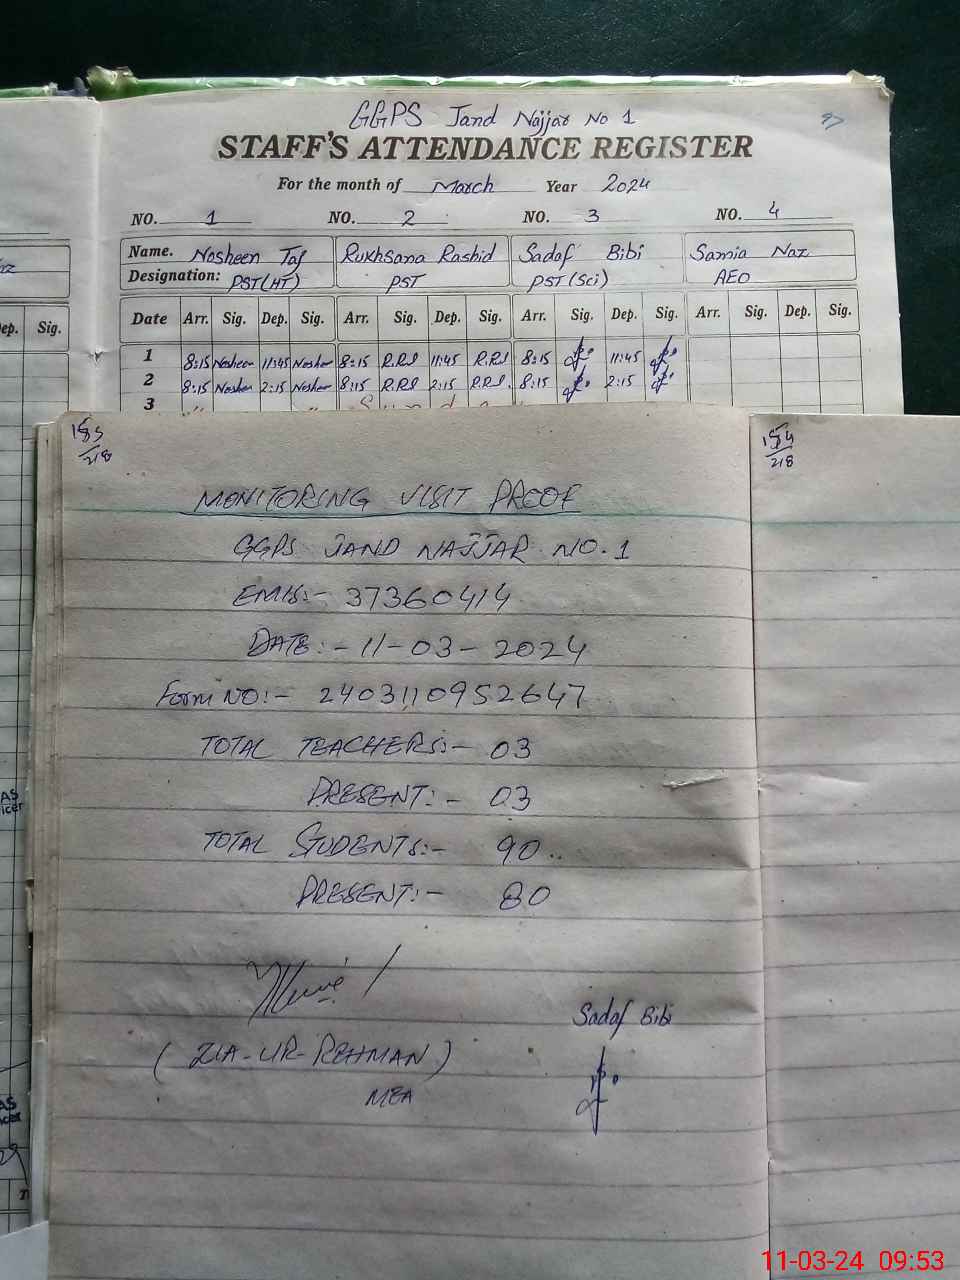 GGPS Jand Najjar No 1
STAFF'S ATTENDANCE REGISTER
For the month of March Year 2024
NO. 1 NO. 2 NO. 3 NO. 4
Name. Nosheen Taj Rukhsana Rashid Sadaf Bibi Samia Naz
Designation: PST(HT) PST PST(Sci) AEO
ep. Sig. Date Arr. Sig. Dep. Sig. Arr. Sig. Dep. Sig. Arr. Sig. Dep. Sig. Arr. Sig. Dep. Sig.
1 8:15 Nosheen 11:45 Nosheen 8:15 R.RS 11:45 R.RS 8:15 11:45
2 8:15 Nosheen 2:15 Nosheen 8:15 R.RS 2:15 R.RS 8:15 2:15
3
185/218
184/218
MONITORING VISIT PROOF
GGPS JAND NAJJAR NO.1
EMIS:- 37360414
DATE:- 11-03-2024
Form NO:- 2403110952647
TOTAL TEACHERS:- 03
PRESENT:- 03
TOTAL STUDENTS:- 90
PRESENT:- 80
Sadaf Bibi
(ZIA-UR-REHMAN)
MEA
11-03-24 09:53